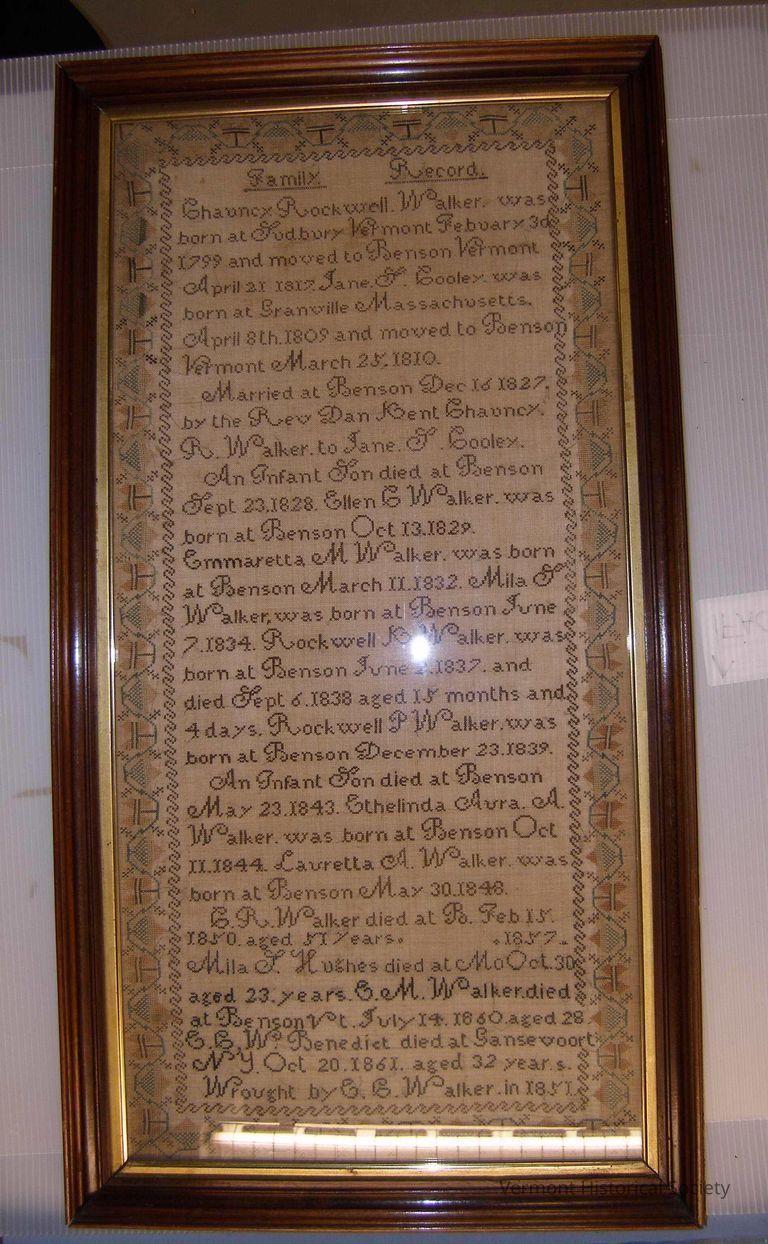 Family Record.
Chauncy Rockwell. Walker. was
born at Sudbury Vermont Febuary 3d
1799 and moved to Benson Vermont
April 21 1817. Jane. S. Cooley. was
born at Granville Massachusetts.
April 8th.1809 and moved to Benson
Vermont March 25.1810.
Married at Benson Dec 16 1827.
by the Rev Dan Kent Chauncy.
R. Walker. to Jane. S. Cooley.
An Infant Son died at Benson
Sept 23.1828. Ellen C Walker. was
born at Benson Oct 13.1829.
Emmaretta M Walker. was born
at Benson March 11.1832. Mila S
Walker, was born at Benson June
7.1834. Rockwell Walker. was
born at Benson June 1837. and
died Sept 6.1838 aged 15 months and
4 days. Rockwell P Walker. was
born at Benson December 23.1839.
An Infant Son died at Benson
May 23.1843. Ethelinda Aura. A.
Walker. was born at Benson Oct
11.1844. Lauretta A. Walker. was
born at Benson May 30.1848.
C.R. Walker died at B. Feb 15.
1850. aged 51 Years. .1857.
Mila S. Hughes died at Mo Oct.30
aged 23. years. E.M. Walker.died
at Benson Vt. July 14. 1860.aged 28.
E.C. W. Benedict died at Gansevoort
N Y. Oct 20.1861. aged 32 years.
Wrought by E. C. Walker. in 1851.
Vermont Historical Society